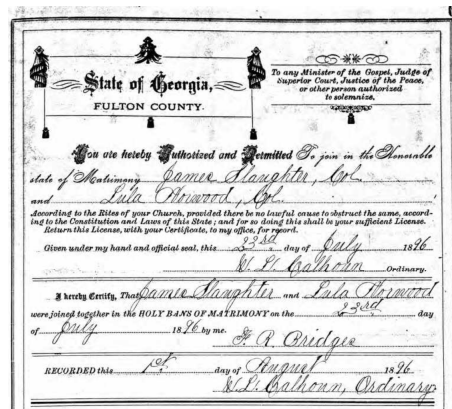 State of Georgia,
FULTON COUNTY.
To any Minister of the Gospel, Judge of
Superior Court, Justice of the Peace,
or other person authorized
to solemnize.
You are hereby Authorized and Permitted To join in the Honorable
state of Matrimony James Slaughter, Col.
and Lula Norwood, Col.
According to the Rites of your Church, provided there be no lawful cause to obstruct the same, accord-
ing to the Constitution and Laws of this State; and for so doing this shall be your sufficient License.
Return this License, with your Certificate, to my office, for record.
Given under my hand and official seal, this 23rd day of July 1896
W. L. Calhoun Ordinary.
I hereby Certify, That James Slaughter and Lula Norwood
were joined together in the HOLY BANS OF MATRIMONY on the 23rd day
of July 1896 by me.
F. R. Bridges
RECORDED this 1st day of August 1896.
W. L. Calhoun, Ordinary